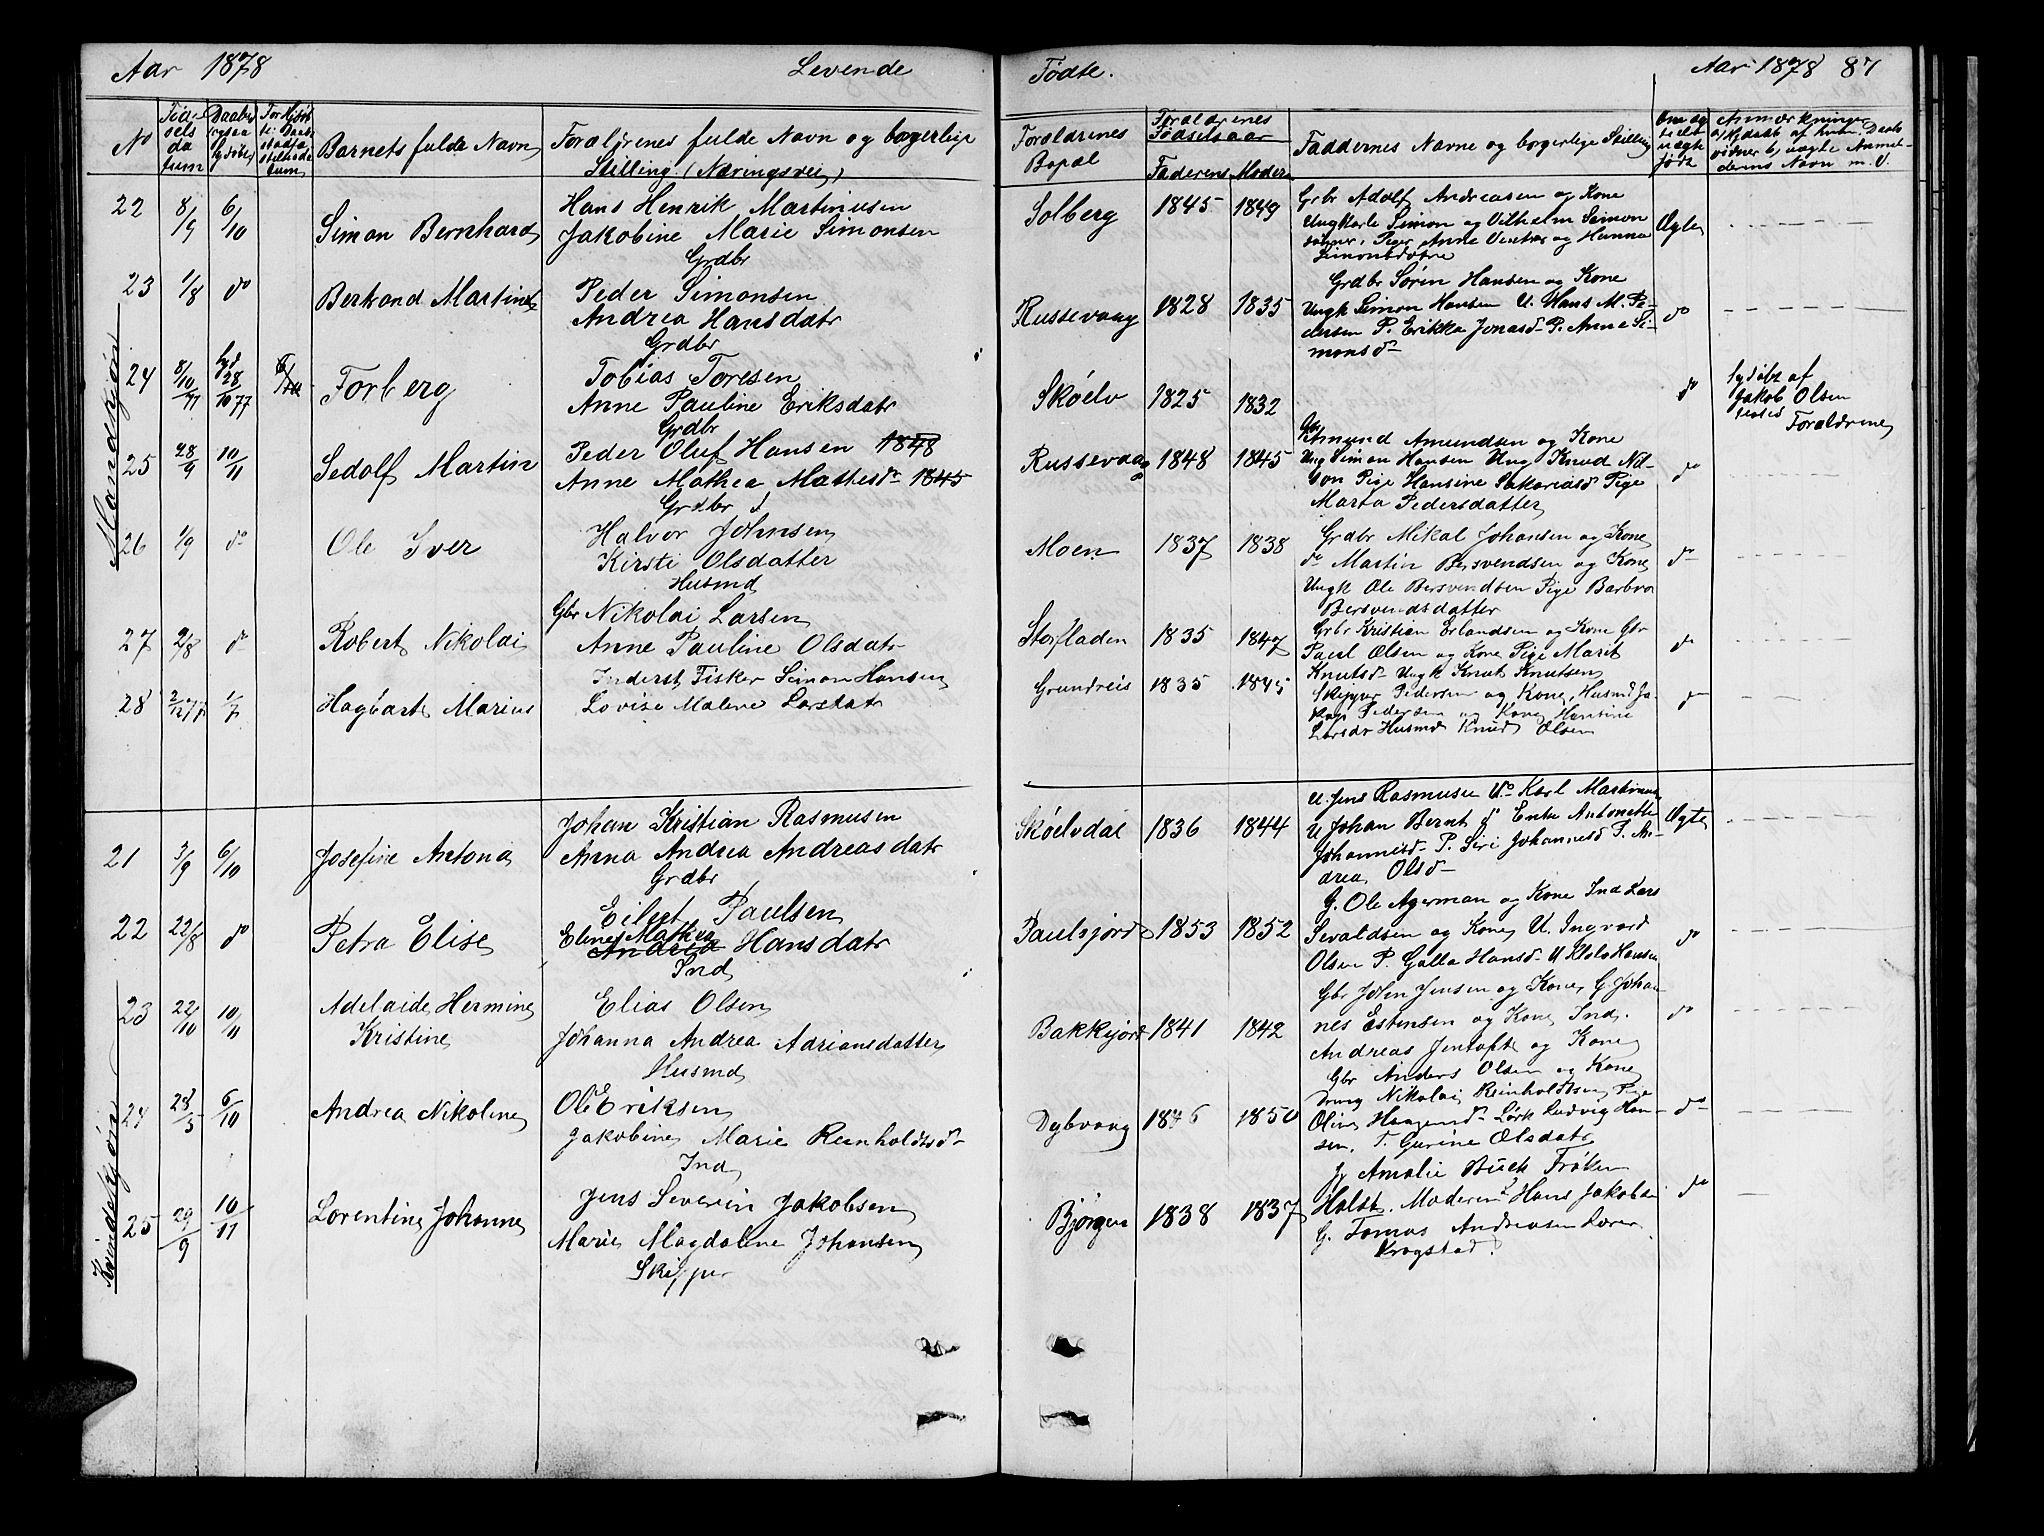 Aar 1878 Levende
No
Barnets fulde Navn
Forældrenes fulde Navn og borgerlige
Stilling (Næringsvei)
Mandkjøn
22 8/9 6/10 Simon Bernhard
Hans Henrik Martinusen
Jakobine Marie Simonsen
Grdbr
23 1/8 do Bertrand Martin
Peder Simonsen
Andrea Hansdatr
Grdbr
24 8/10 77 28/10 77 Torberg
Tobias Toresen
Anne Pauline Eriksdatr
Grdbr
25 28/9 10/11 Sedolf Martin
Peder Oluf Hansen 1848
Anne Mathea Mattesd 1845
Grdbr
26 1/9 do Ole Iver
Halvor Johnsen
Kirsti Olsdatter
Husmd
27 2/8 do Robert Nikolai
Gbr Nikolai Larsen
Anne Pauline Olsdatr
28 2/12 77 1/7 Hagbart Marius
Inderst, Fisker Simon Hansen
Lovise Malene Larsdatr
Kvindekjøn
21 3/9 6/10 Josefine Antona
Johan Kristian Rasmusen
Anna Andrea Andreasdatr
Grdbr
22 22/8 do Petra Elise
Eilert Paulsen
Eline Mathea Andrea Hansdatr
Ind
23 22/10 10/11 Adelaide Hermine
Kristine
Elias Olsen
Johanna Andrea Adriansdatter
Husmd
24 23/5 6/10 Andrea Nikoline
Ole Eriksen
Jakobine Marie Reinholdtsd
Ind
25 29/9 10/11 Lorentine Johanne
Jens Severin Jakobsen
Marie Magdalene Johansen
Skipper
Fødte. Aar 1878 87
Forældrenes
Bopæl
Forældrenes
Fødselsaar
Faderens Moder
Faddernes Navne og borgerlige Stilling
Solberg 1845 1849
Grbr Adolf Andreasen og Kone
Ungkarle Simon og Vilhelm Simon
Ægte
Russevaag 1828 1835
Grdbr Søren Hansen og Kone
Ungk Simon Hansen U. Hans M. Pe-
dersen P. Erikka Jonasd P. Anne Si-
monsd
do
Skøelv 1825 1832
do
hjdøbt af
Jakob Olsen
Forældrene
Russevaag 1848 1845
Amund Amundsen og Kone
Ung Simon Hansen Ung Knud Nil-
son Pige Hansine Sakariasd Pige
Marta Pedersdatter
do
Moen 1837 1838
Grdbr Mikal Johansen og Kone
do Martin Bersvendsen og Kone
Ungk Ole Bersvendsen Pige Barbro
Bersvendsdatter
do
Storfladen 1835 1847
Grbr Kristian Erlandsen og Kone Gbr
Paul Olsen og Kone Pige Marit
Knutsd Ungk Knut Knutsen
do
Grundreis 1835 1845
Skipper Pedersen og Kone, Husmd Ja-
kap Pedersen og Kone, Hansine
Larsdr Husmd Knud Olsen
Skøelvdal 1836 1844
U. Jens Rasmusen
U Johan Bernt Enke Antonette
Johannesd P. Siri Johannesd P. An-
drea Olsd
Ægte
Paulsjord 1853 1852
G. Ole Agerman og Kone Ind Lars
Sevaldsen og Kone U. Ingvard
Olsen P. Galla Hansd
do
Bakkejord 1841 1842
Gbr John Jensen og Kone, G. Johan-
nes Estensen og Kone, Ind.
Andreas Jentoft og Kone
do
Dybvaag 1846 1850
Gbr Anders Olsen og Kone
Nikolai Reinholdtsen Pige
Ludvig Han-
sen, Gurine Olsdatr
do
Bjørgen 1838 1837
Amalie Buck Frøken
Holst. Moderen Hans Jakobsen
G. Tomas Andreasen Lærer
Krogstad.
do